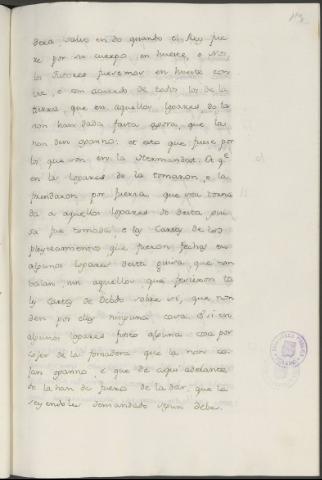 dera, salvo en do quando el Rey fue
re por su cuerpo en hueste, o Nos,
los Tutores fueremos en hueste con
el, e con acuerdo de todos los de la
tierra, que en aquellos logares, do la
non han dada fasta agora, que la
non den oganno: et esto que fuere por
los que son en la Hermandat. Et qe
en los logares do la tomaron, e la
prendaron por fuerza que sea torna
da a aquellos logares de donde oui
da fue tomada, e las Cartas de los
pleyteamientos que fueron fechas en
algunos logares desta guisa, que non
valan, nin aquellos que ficieron ta
les Cartas de Debdo sobre si, que non
den por ellas ninguna cosa. E si en
algunos logares finco alguna cosa por
coger de la fonsadera que la non co
jan oganno, e que de aqui adelante
do la han de fuero de la dar, que la
seyendoles demandado segun debe.